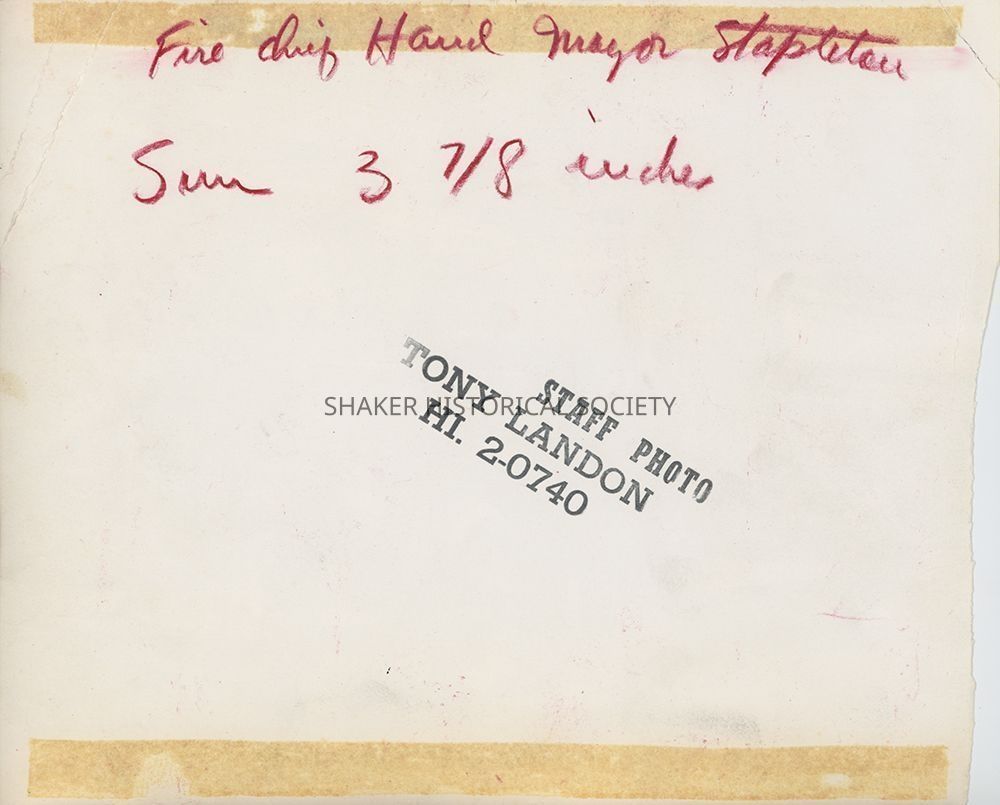 Fire chief Hand Mayor Stapleton
Sun 3 7/8 inches
STAFF PHOTO
TONY LANDON
HI. 2-0740
SHAKER HISTORICAL SOCIETY